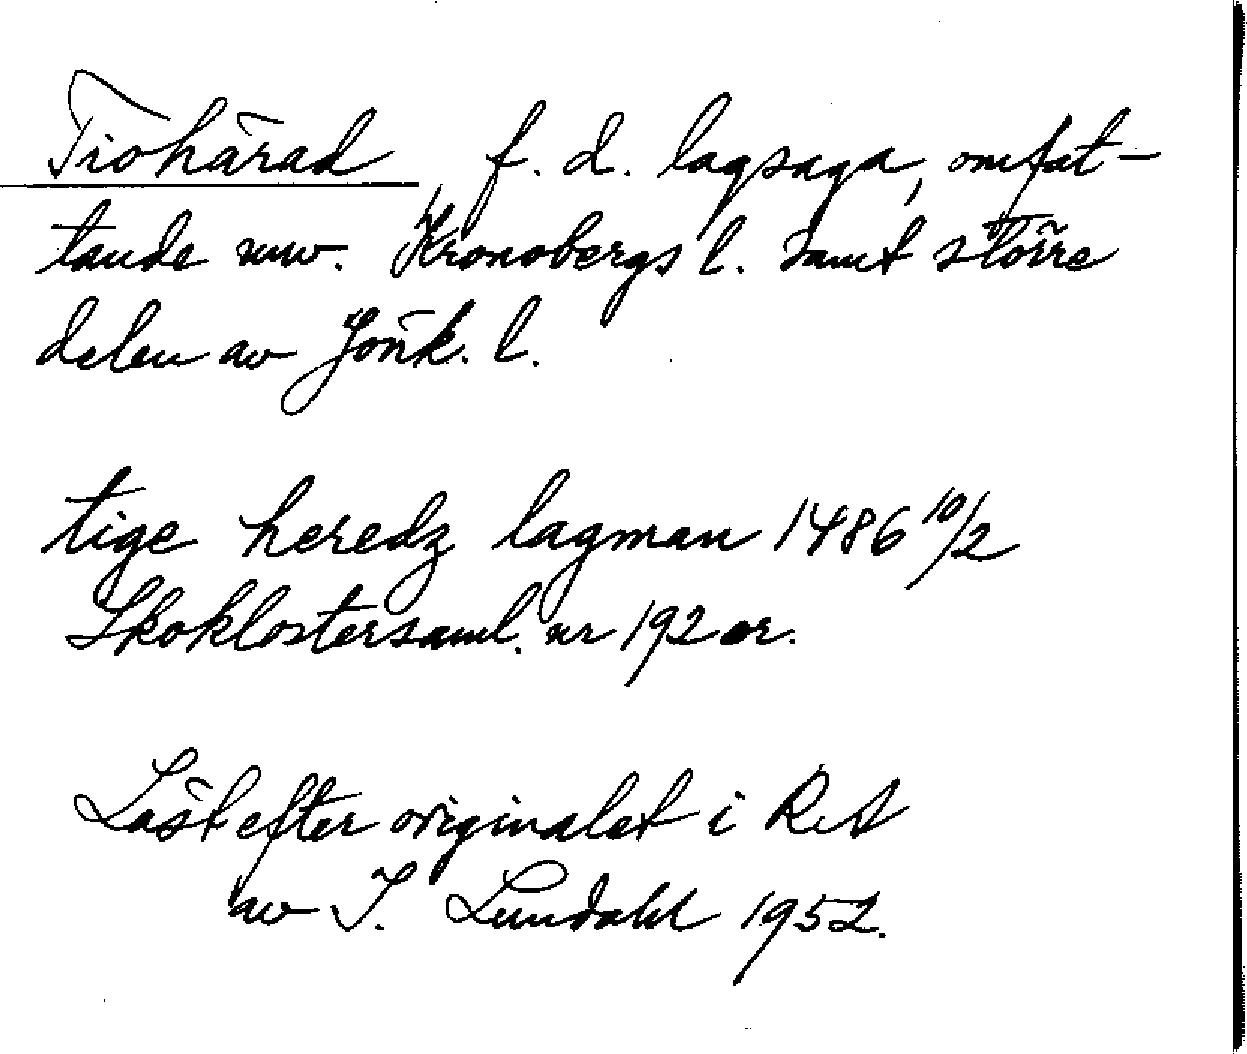 Tiohärad f. d. lagsaga, omfat-
tande nuv. Kronobergs l. samt större
delen av Jönk. l.
tige heredz lagman 1486 10/2
Skoklostersaml. nr 192 or.
Läst efter originalet i RA
av I. Lundahl 1952.